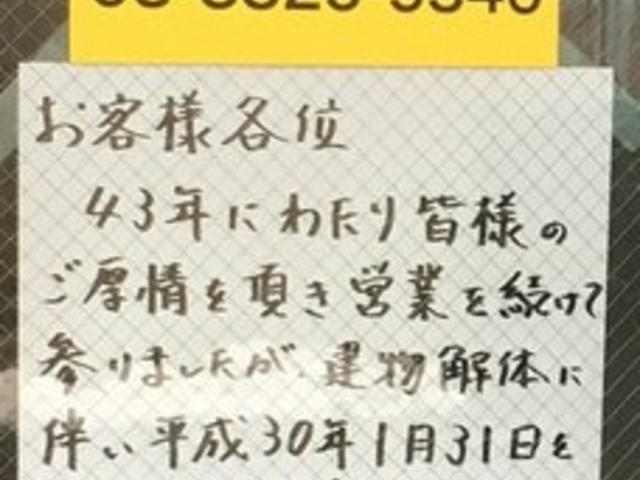 お客様各位
43年にわたり皆様の
ご厚情を頂き営業を続けて
参りましたが、建物解体に
伴い平成30年1月31日を